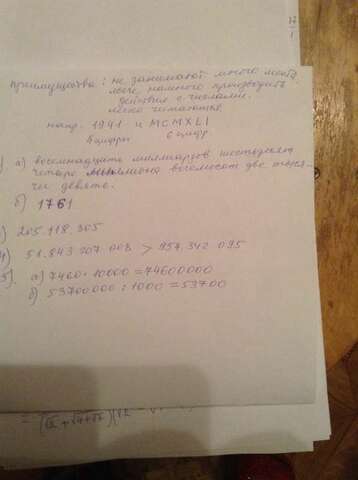 преимущества: не занимают много места
легче намного производить
действия с числами.
легко читаются
напр. 1941 и MCMXLI
цифры 6 цифр
) а) восемнадцать миллиардов шестьдесят
четыре миллиона восемьсот две тыся-
чи девять.
б) 1761
) 205.118.305
4) 51.843.207.008 > 957.342.095
5). а) 7460 · 10000 = 74600000
б) 53700.000 : 1000 = 53700